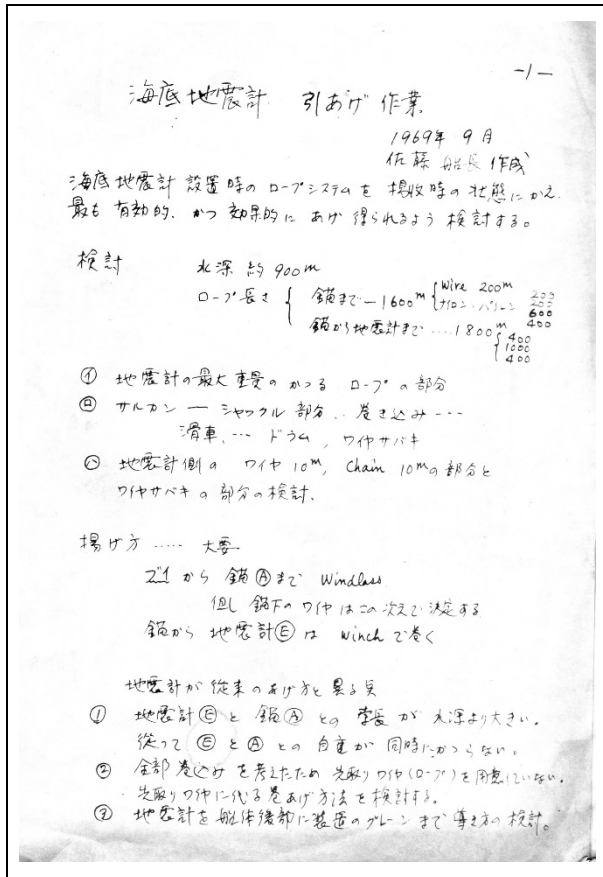 -1-
海底地震計 引あげ作業
1969年 9月
佐藤船長作成
海底地震計設置時のロープシステムを揚収時の状態にかえ.
最も有効的、かつ効果的にあげ得られるよう検討する。
検討 水深 約900m
ロープ長さ 錨まで−1600m Wire 200m 200
ナイロン・パイレーン 200
600
錨から地震計まで‥‥1800m 400
400
1000
400
㋑ 地震計の最大重量のかゝる ロープの部分
㋺ サルカン ― シャックル部分‥巻き込み---
滑車、… ドラム, ワイヤサバキ
㋩ 地震計側の ワイヤ10m, Chain 10mの部分と
ワイヤサバキの部分の検討.
揚げ方 ‥‥‥ 大要
ブイから 錨Ⓐまで Windlass
但し 錨下のワイヤはこの次で決定する
錨から 地震計Ⓔは Winchで巻く
地震計が従来のあげ方と異る点
① 地震計Ⓔと 錨Ⓐとの 長が水深より大きい.
従って ⒺとⒶとの自重が同時にかゝらない。
② 全部巻込みを考えたため先取りワイヤ(ロープ)を用意していない.
先取りワイヤに代る巻あげ方法を検討する。
③ 地震計を船体後部に装置のクレーンまで導き方の検討。